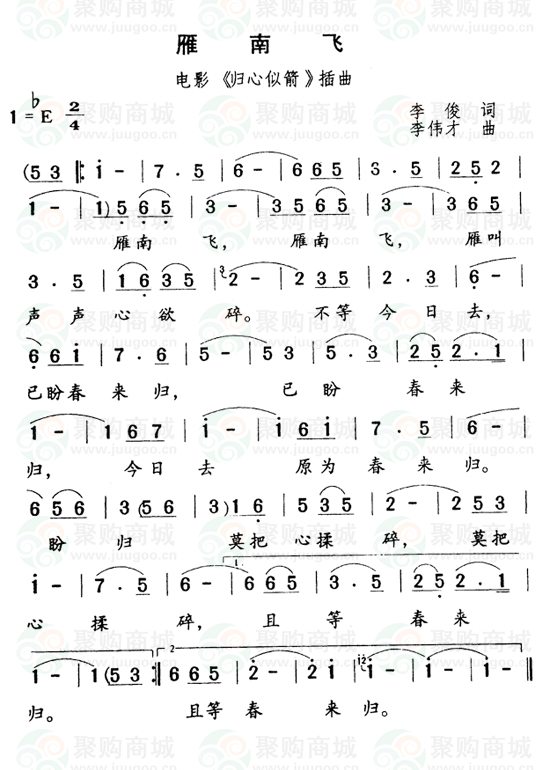 雁 南 飞
电影《归心似箭》插曲
1=♭E 2/4
李 俊 词
李伟才 曲
(5 3 ‖: i - | 7 . 5 | 6 - | 6 6 5 | 3 . 5 | 2 5 2 |
1 - | 1) 5 6 5 | 3 - | 3 5 6 5 | 3 - | 3 6 5 |
雁南 飞, 雁南 飞, 雁叫
3 . 5 | 1 6 3 5 | 2 - | 2 3 5 | 2 . 3 | 6 - |
声 声 心 欲 碎。 不等 今 日 去,
6 6 i | 7 . 6 | 5 - | 5 3 | 5 . 3 | 2 5 2 . 1 |
已盼春 来 归, 已 盼 春 来
1 - | 1 6 7 | i - | i 6 i | 7 . 5 | 6 - |
归, 今日 去 原为 春 来 归。
6 5 6 | 3 (5 6 | 3) 1 6 | 5 3 5 | 2 - | 2 5 3 |
盼 归 莫把 心揉 碎, 莫把
i - | 7 . 5 | 6 - | 6 6 5 | 3 . 5 | 2 5 2 . 1 |
1.
心 揉 碎, 且 等 春 来
1 - | 1 (5 3 :‖ 6 6 5 | 2 - | 2 i | i - | i - ‖
2
归。 且等 春 来 归。
聚购商城
www.juugoo.cn